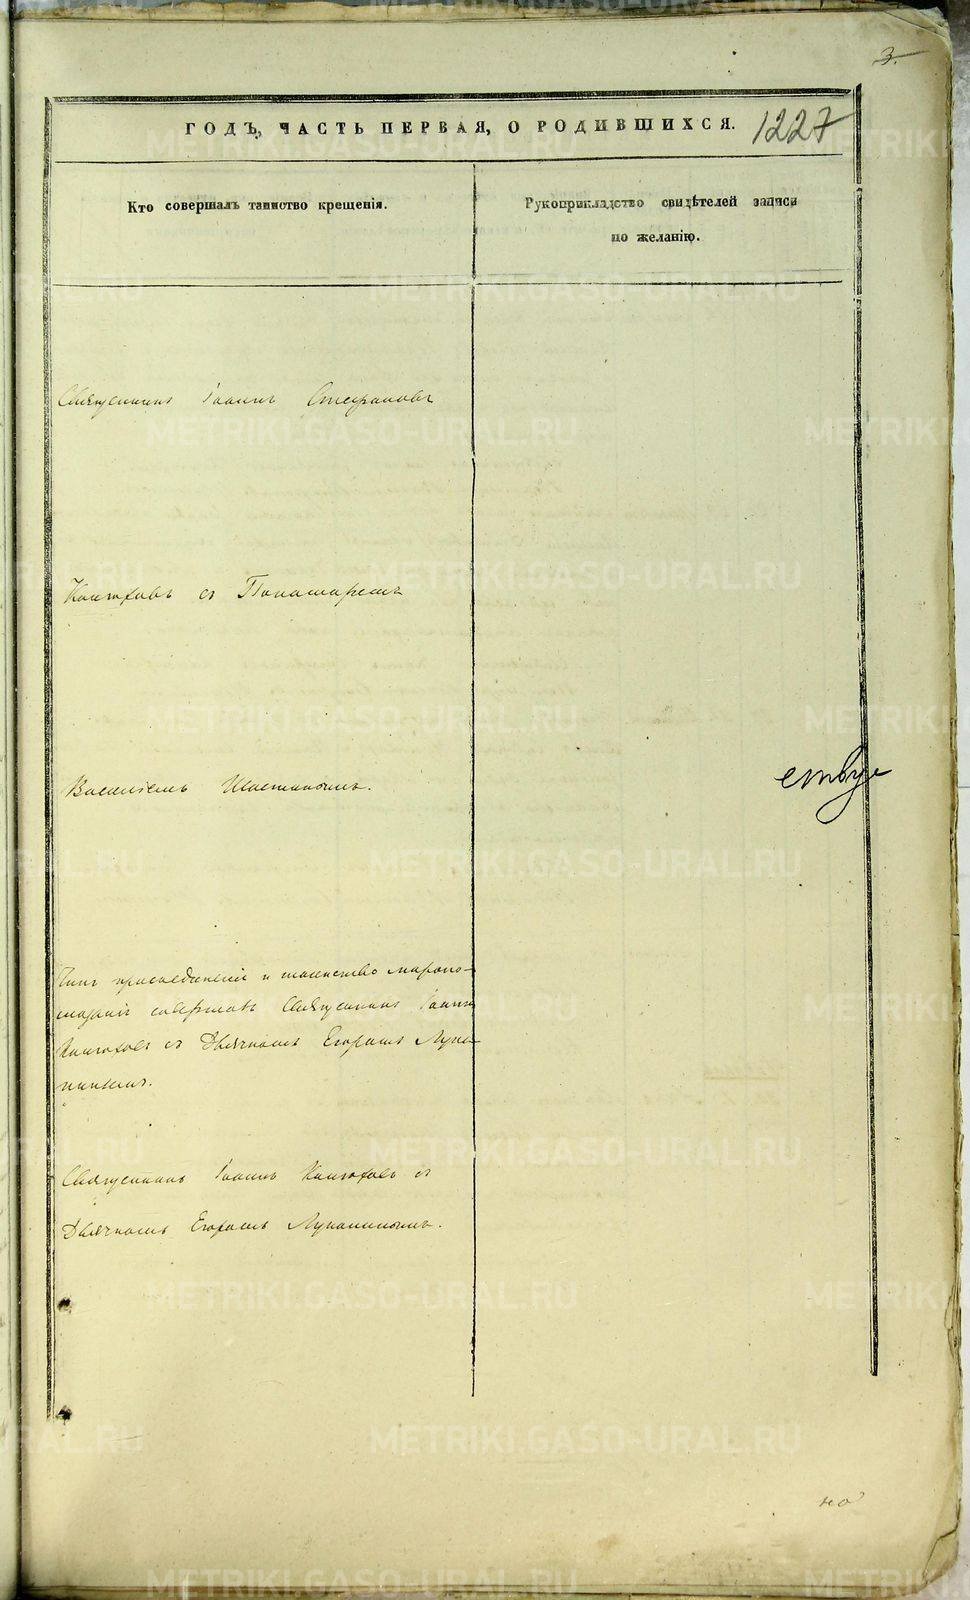 3.
ГОДЪ, ЧАСТЬ ПЕРВАЯ, О РОДИВШИХСЯ.
1227
Кто совершалъ таинство крещенія.
Рукоприкладство свидѣтелей записи
по желанію.
Священникъ Іоаннъ Стефановъ
съ Пономаремъ
Василіемъ
Чинъ присоединенія и таинство мѵропо-
мазанія совершалъ Священникъ Іоаннъ
съ Дьячкомъ Егоромъ Лука-
нинымъ.
Священникъ Іоаннъ съ
Дьячкомъ Егоромъ Луканинымъ.
ству
но
METRIKI.GASO-URAL.RU